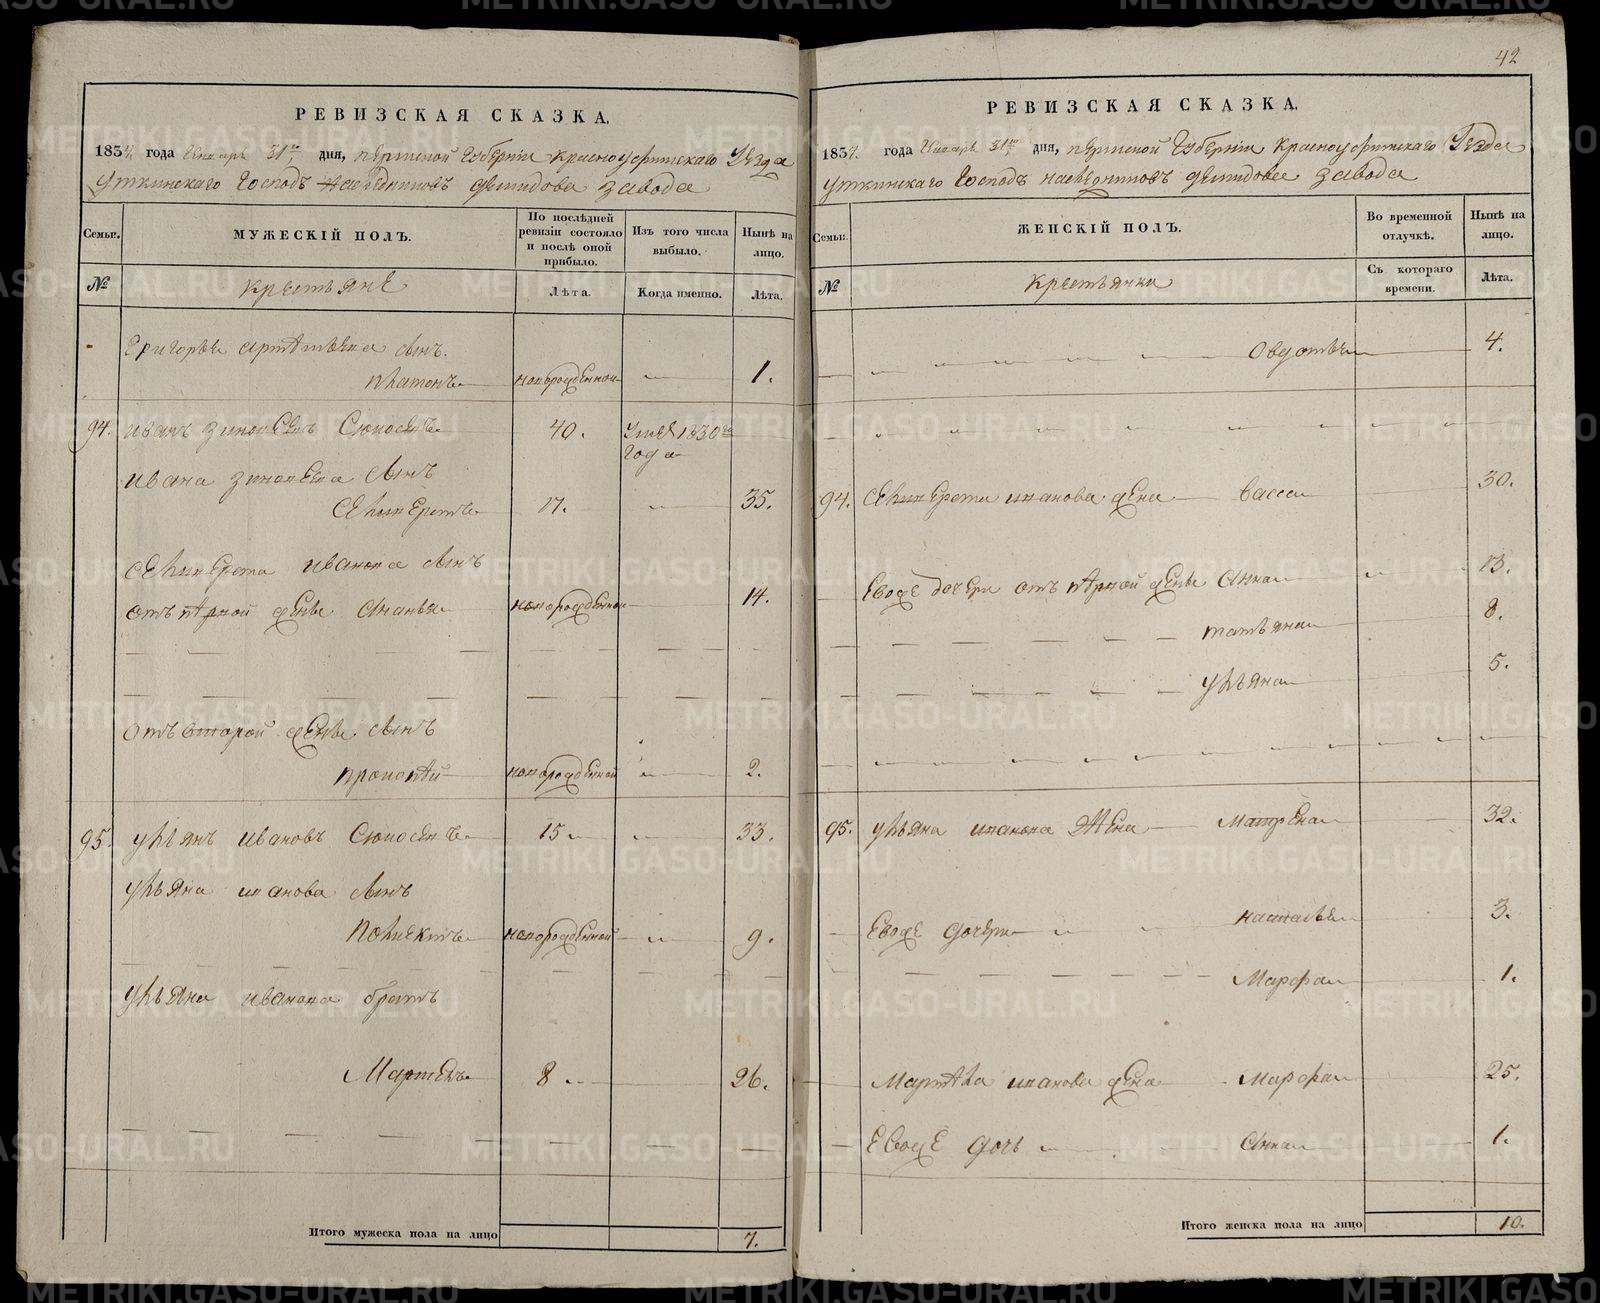 42
РЕВИЗСКАЯ СКАЗКА.
1834 года Генваря 31го дня, пермской Губернiи Красноуфимскаго Уезда
Уткинскаго Господъ наследниковъ Демидова завода
Семьи. МУЖЕСКIЙ ПОЛЪ. По послѣдней ревизiи состояло и послѣ оной прибыло. Изъ того числа выбыло. Нынѣ на лицо.
№ крестьяне Лѣта. Когда именно. Лѣта.
Григорья сынъ
платонъ новорожденной 1.
94. иванъ зиновьевъ 40. умре 1830го года
ивана зиновьева сынъ
селиверстъ 17. 35.
селиверста иванова сынъ
отъ первой жены Ананья новорожденной 14.
отъ второй жены сынъ
прокопей новорожденной 2.
95. ульянъ ивановъ 15 33.
ульяна иванова сынъ
новорожденной 9.
ульяна иванова братъ
8 26.
Итого мужеска пола на лицо 7.
РЕВИЗСКАЯ СКАЗКА.
1834. года Генваря 31го дня, пермской Губернiи Красноуфимскаго Уезда
Уткинскаго Господъ наследниковъ Демидова завода
Семьи. ЖЕНСКIЙ ПОЛЪ. Во временной отлучкѣ. Нынѣ на лицо.
№ крестьянки Съ котораго времени. Лѣта.
Овдотья 4.
94. селиверста иванова жена Васса 30.
Евоже дочери отъ первой жены Анна 13.
татьяна 8.
ульяна 5.
95. ульяна иванова жена Матрена 32.
Евоже дочери настасья 3.
Марфа 1.
иванова жена Марфа 25.
Евоже дочь Анна 1.
Итого женска пола на лицо 10.
METRIKI.GASO-URAL.RU